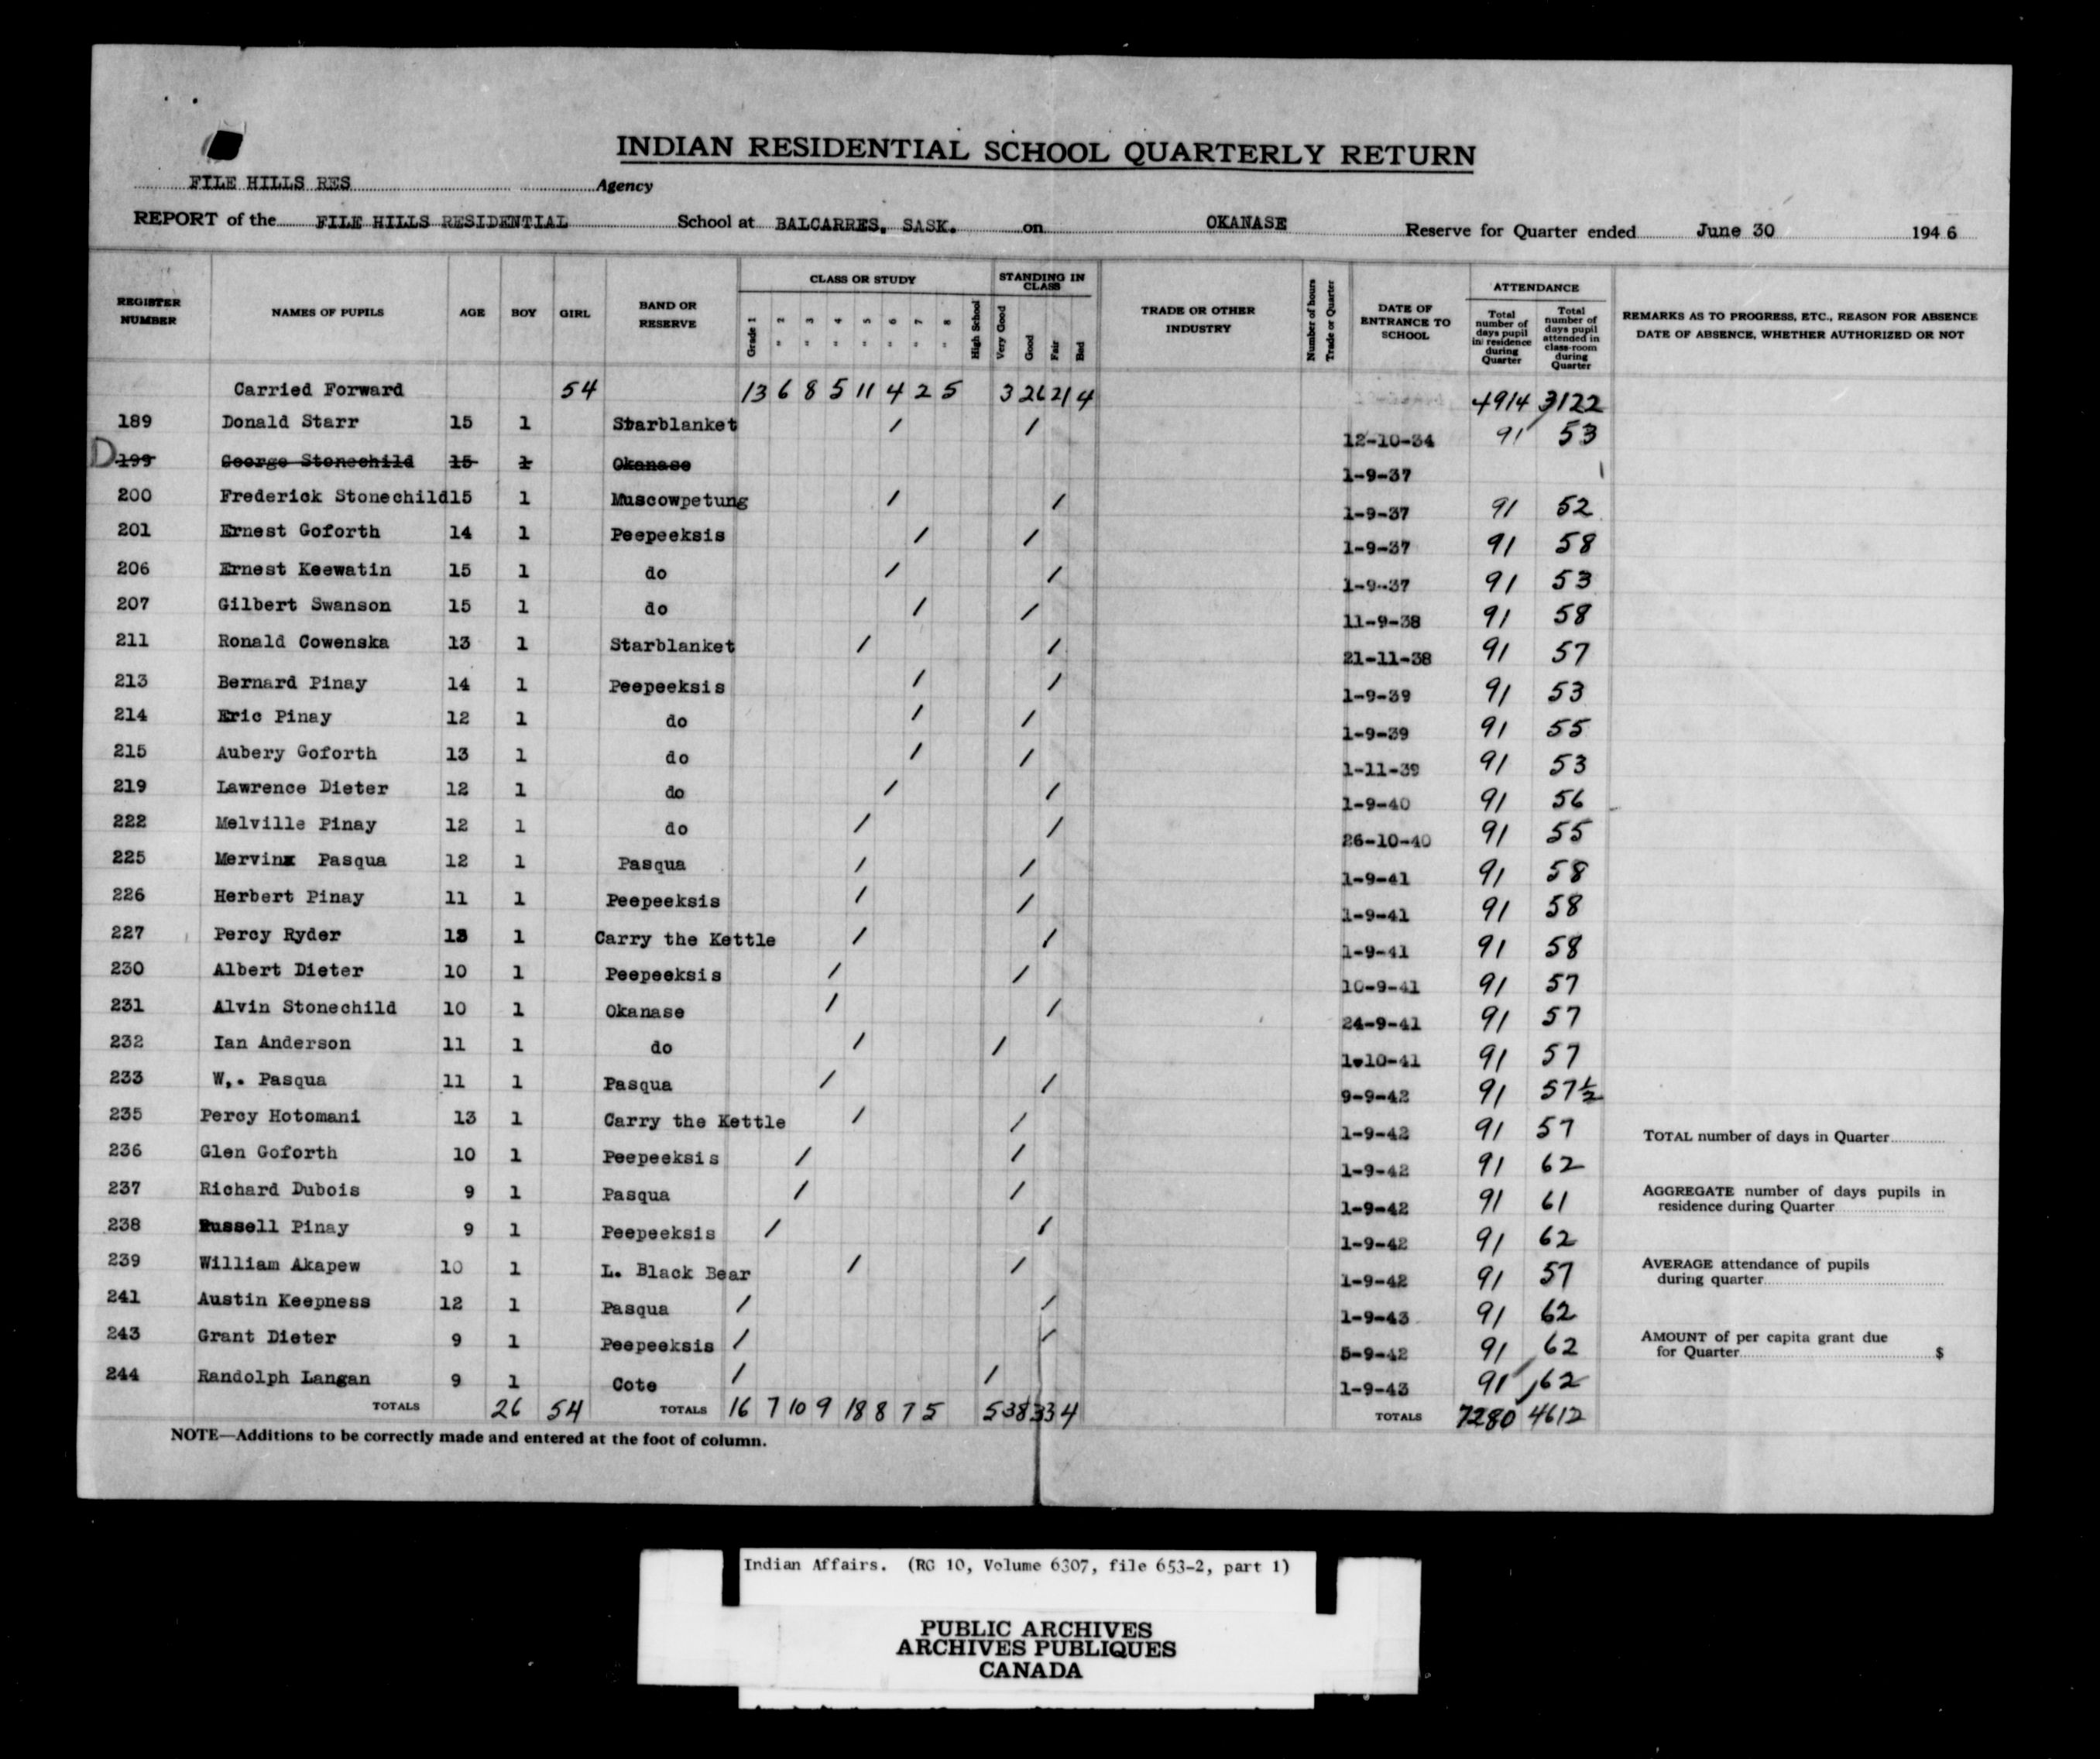 INDIAN RESIDENTIAL SCHOOL QUARTERLY RETURN
FILE HILLS RES Agency
REPORT of the FILE HILLS RESIDENTIAL School at BALCARRES, SASK. on OKANASE Reserve for Quarter ended June 30 1946
REGISTER NUMBER NAMES OF PUPILS AGE BOY GIRL BAND OR RESERVE CLASS OR STUDY Grade 1 " 2 " 3 " 4 " 5 " 6 " 7 " 8 High School STANDING IN CLASS Very Good Good Fair Bad TRADE OR OTHER INDUSTRY Number of hours Trade or Quarter DATE OF ENTRANCE TO SCHOOL ATTENDANCE Total number of days pupil in residence during Quarter Total number of days pupil attended in class-room during Quarter REMARKS AS TO PROGRESS, ETC., REASON FOR ABSENCE DATE OF ABSENCE, WHETHER AUTHORIZED OR NOT
Carried Forward 54 13 6 8 5 11 4 2 5 3 26 21 4 4914 3122
189 Donald Starr 15 1 Starblanket / / 12-10-34 91 53
D 199 George Stonechild 15 1 Okanase 1-9-37
200 Frederick Stonechild 15 1 Muscowpetung / / 1-9-37 91 52
201 Ernest Goforth 14 1 Peepeeksis / / 1-9-37 91 58
206 Ernest Keewatin 15 1 do / / 1-9-37 91 53
207 Gilbert Swanson 15 1 do / / 11-9-38 91 58
211 Ronald Cowenska 13 1 Starblanket / / 21-11-38 91 57
213 Bernard Pinay 14 1 Peepeeksis / / 1-9-39 91 53
214 Eric Pinay 12 1 do / / 1-9-39 91 55
215 Aubery Goforth 13 1 do / / 1-11-39 91 53
219 Lawrence Dieter 12 1 do / / 1-9-40 91 56
222 Melville Pinay 12 1 do / / 26-10-40 91 55
225 Mervinx Pasqua 12 1 Pasqua / / 1-9-41 91 58
226 Herbert Pinay 11 1 Peepeeksis / / 1-9-41 91 58
227 Percy Ryder 1 Carry the Kettle / / 1-9-41 91 58
230 Albert Dieter 10 1 Peepeeksis / / 10-9-41 91 57
231 Alvin Stonechild 10 1 Okanase / / 24-9-41 91 57
232 Ian Anderson 11 1 do / / 1-10-41 91 57
233 W,. Pasqua 11 1 Pasqua / / 9-9-42 91 57½
235 Percy Hotomani 13 1 Carry the Kettle / / 1-9-42 91 57
236 Glen Goforth 10 1 Peepeeksis / / 1-9-42 91 62
237 Richard Dubois 9 1 Pasqua / / 1-9-42 91 61
238 Russell Pinay 9 1 Peepeeksis / / 1-9-42 91 62
239 William Akapew 10 1 L. Black Bear / / 1-9-42 91 57
241 Austin Keepness 12 1 Pasqua / / 1-9-43 91 62
243 Grant Dieter 9 1 Peepeeksis / / 5-9-42 91 62
244 Randolph Langan 9 1 Cote / / 1-9-43 91 62
TOTALS 26 54 TOTALS 16 7 10 9 18 8 7 5 5 38 33 4 TOTALS 7280 4612
TOTAL number of days in Quarter
AGGREGATE number of days pupils in
residence during Quarter
AVERAGE attendance of pupils
during quarter
AMOUNT of per capita grant due
for Quarter $
NOTE—Additions to be correctly made and entered at the foot of column.
Indian Affairs. (RG 10, Volume 6307, file 653-2, part 1)
PUBLIC ARCHIVES
ARCHIVES PUBLIQUES
CANADA